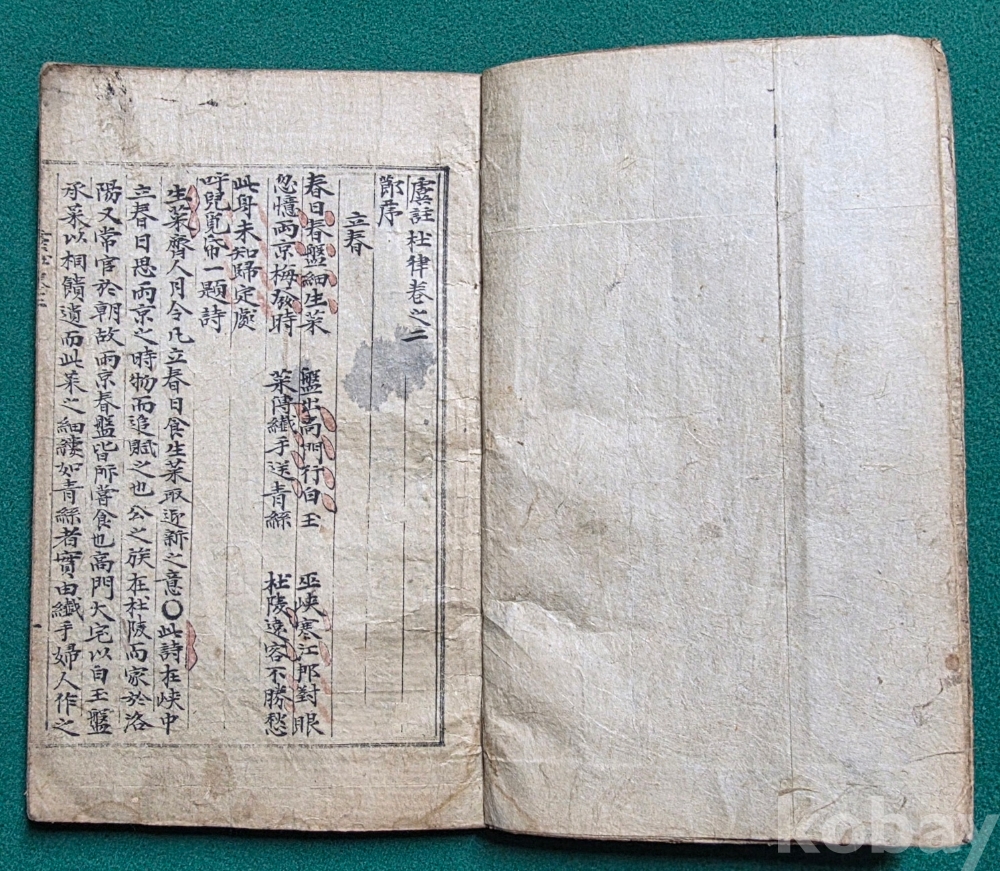 虞註杜律卷之二
節序
立春
春日春盤細生菜 盤出高門行白玉 巫峽寒江那對眼
忽憶兩京梅發時 菜傳纖手送青絲 杜陵遠客不勝愁
此身未知歸定處
呼兒覓帋一題詩
生菜齊人月令凡立春日食生菜取迎新之意○此詩在峽中
立春日思兩京之時物而追賦之也公之族在杜陵而家於洛
陽又常官於朝故兩京春盤皆所嘗食也高門大宅以白玉盤
承菜以相饋遺而此菜之細縷如青絲者實由纖手婦人作之
kobay